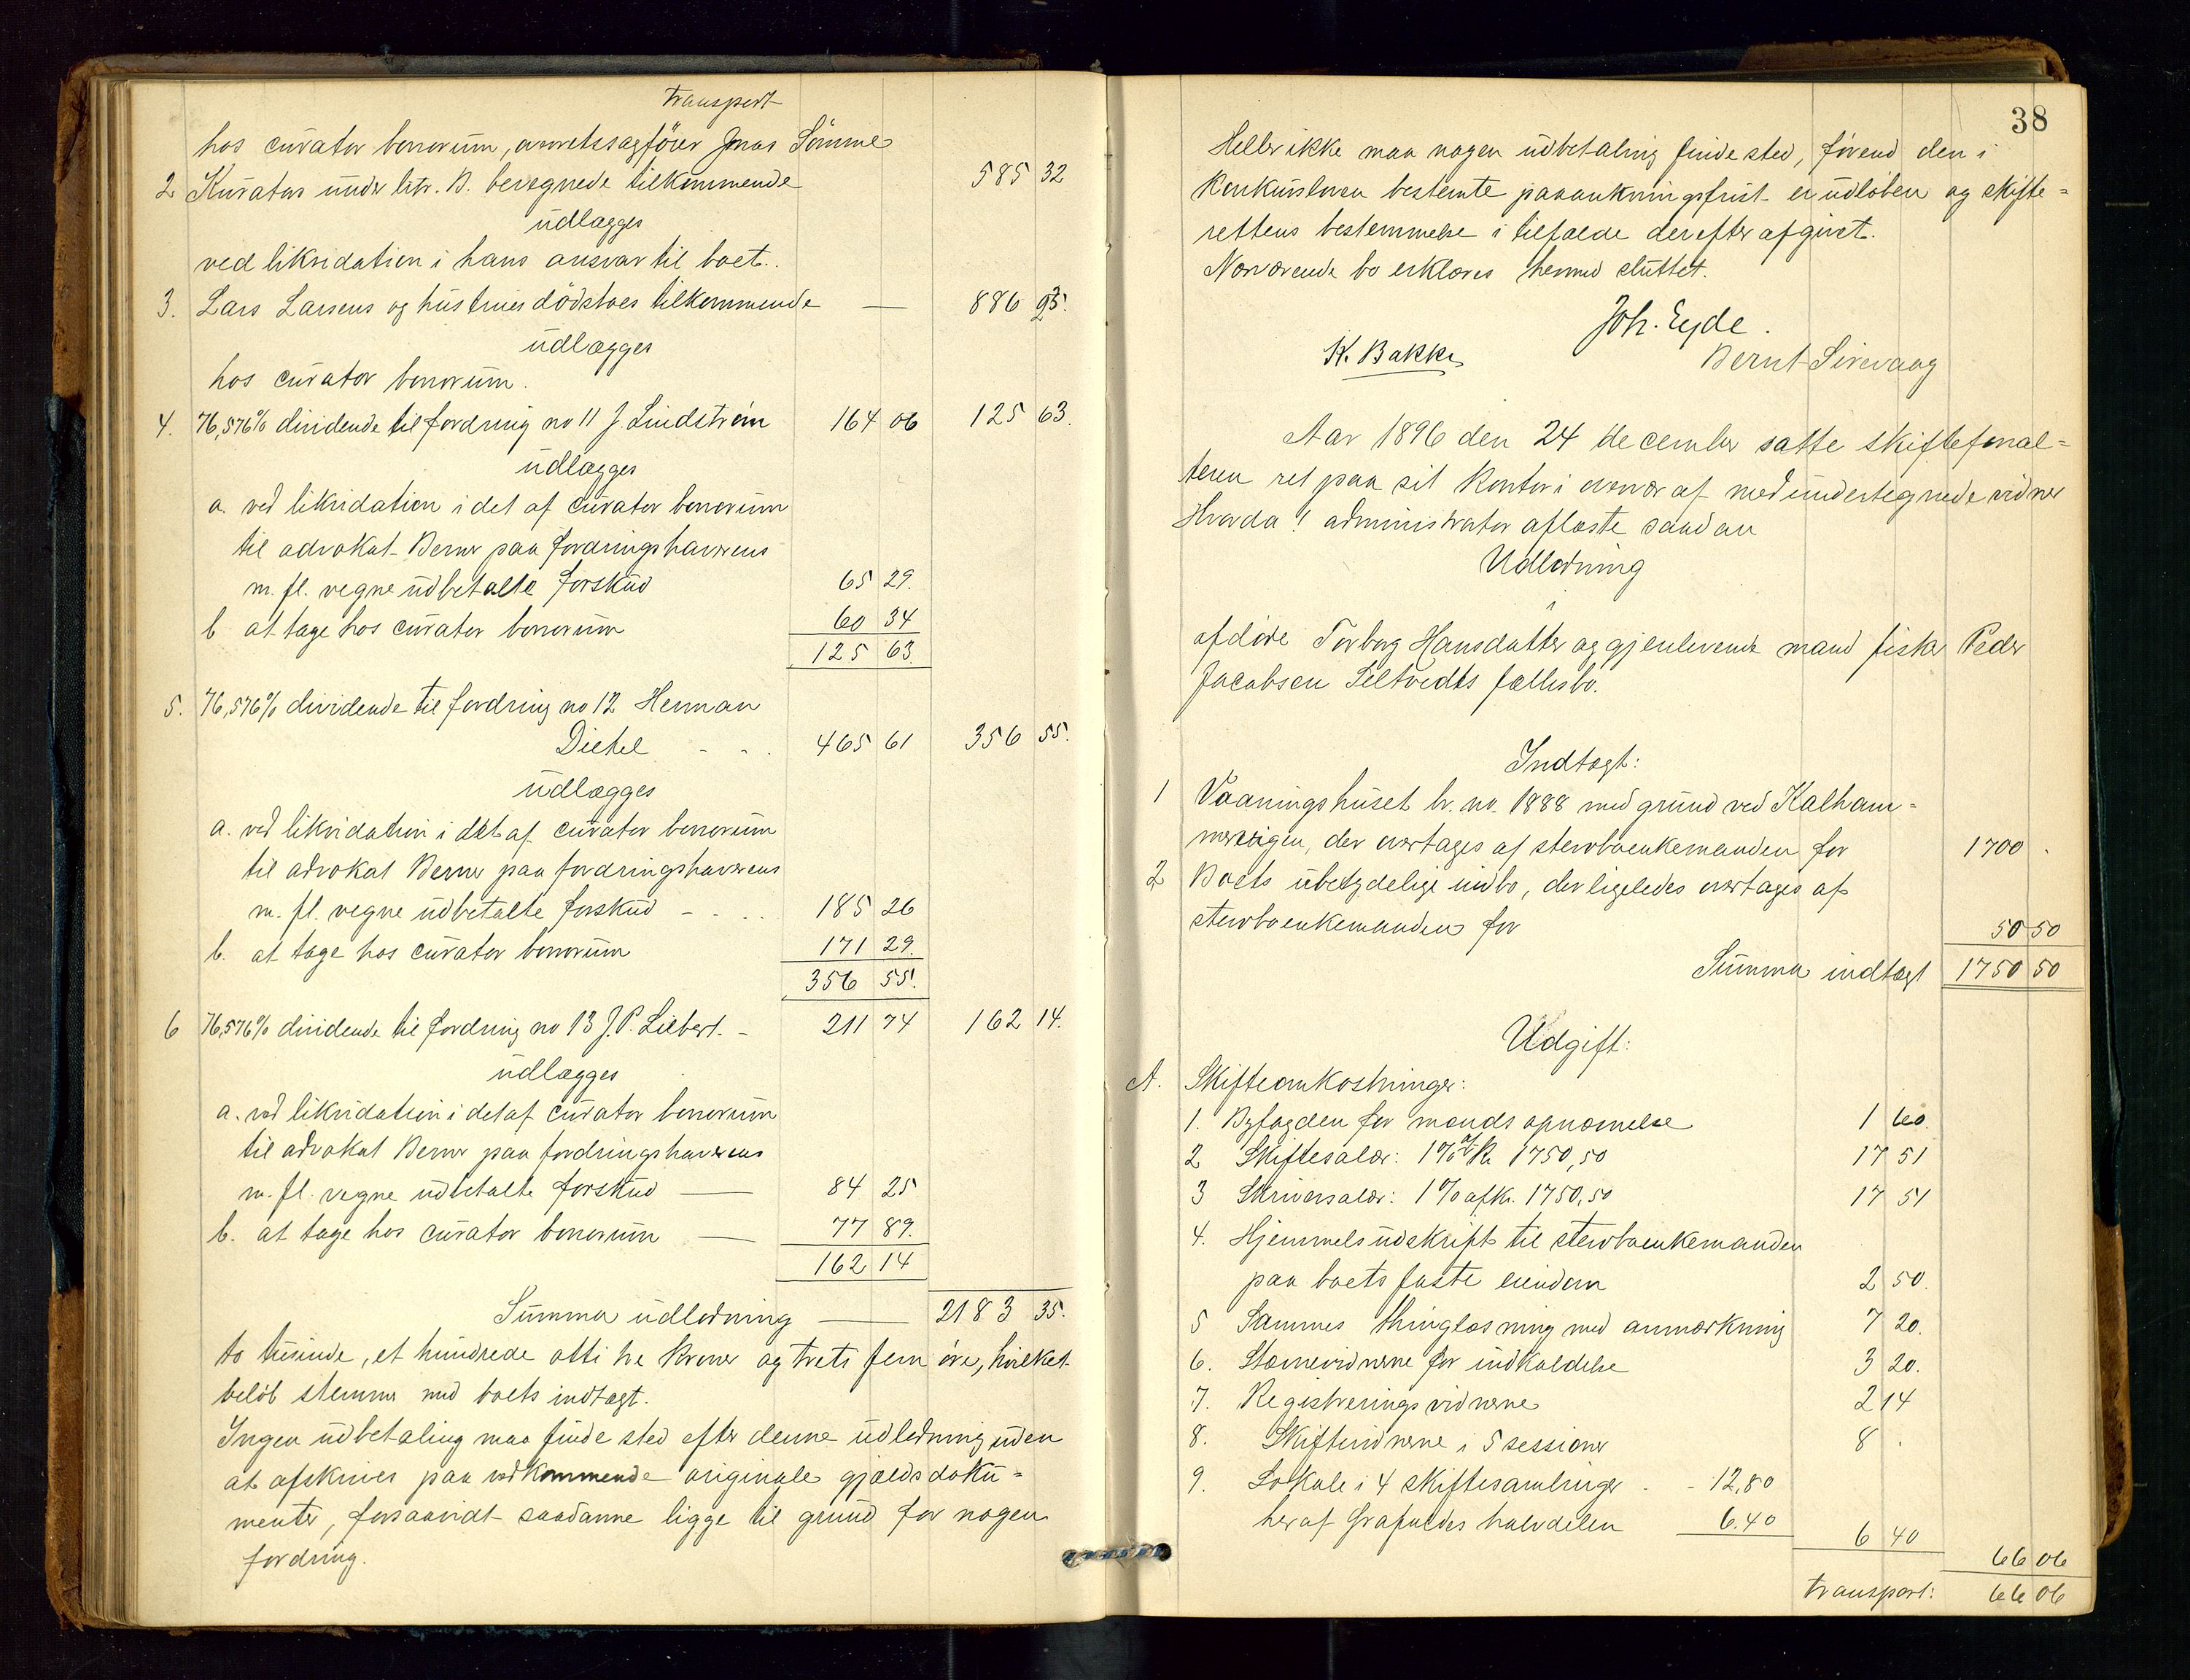 transport
hos curator bonorum, overretssagfører Jonas Sømme
2 Kurators under litr. B. beregnede tilkommende 585 32
udlægges
ved likvidation i hans ansvar til boet.
3. Lars Larsens og hustrues dødsboes tilkommende — 886 93.
udlægges
hos curator bonorum.
4. 76,576% dividende til fordring no 11 J. Lindstrøm 164 06 125 63.
udlægges
a. ved likvidation i det af curator bonorum
til advokat Berner paa fordringshaverens
m. fl. vegne udbetalte forskud 65 29.
b at tage hos curator bonorum 60 34
125 63.
5. 76,576% dividende til fordring no 12 Herman
Dietel - - . 465 61 356 55.
udlægges
a. ved likvidation i det af curator bonorum
til advokat Berner paa fordringshaverens
m. fl. vegne udbetalte forskud - . . 185 26
b. at tage hos curator bonorum 171 29.
356 55.
6 76,576% dividende til fordring no 13 J. P. Liebert. - 211 74 162 14.
udlægges
a. ved likvidation i det af curator bonorum
til advokat Berner paa fordringshaverens
m. fl. vegne udbetalte forskud — 84 25
b. at tage hos curator bonorum — 77 89.
162 14
Summa udlodning — 2183 35.
to tusinde, et hundrede otti tre kroner og treti fem øre, hvilket
beløb stemmer med boets indtægt.
Ingen udbetaling maa finde sted efter denne udlodning uden
at afskrives paa vedkommende originale gjældsdoku=
menter, forsaavidt saadanne ligge til grund for nogen
fordring.
38
Heller ikke maa nogen udbetaling finde sted, førend den i
konkursloven bestemte paaankningsfrist er udløben og skifte=
rettens bestemmelse i tilfælde derefter afgivet.
Nærværende bo erklæres hermed sluttet.
Joh. Eyde.
K. Bakke Bernt Sirevaag
Aar 1896 den 24 december satte skifteforval=
teren ret paa sit kontor i overvær af medundertegnede vidner
Hvorda! administrator aflæste saadan
Udlodning
i
afdøde Torborg Hansdatter og gjenlevende mand fisker Peder
Jacobsen Seltvedts fællesbo.
Indtægt:
1 Vaaningshuset br. no. 1888 med grund ved Kalham=
mervigen, der overtages af stervboenkemanden for 1700 .
2 Boets ubetydelige indbo, der ligeledes overtages af
stervboenkemanden for 50 50
Summa indtægt 1750 50
Udgift:
A. Skifteomkostninger:
1. Byfogden for mænds opnævnelse 1 60.
2 Skiftesalær: 1% af Kr 1750,50 17 51
3 Skriversalær: 1% af Kr. 1750,50 17 51
4. Hjemmelsudskrift til stervboenkemanden
paa boets faste eiendom 2 50.
5 Sammes thinglæsning med anmærkning 7 20.
6. Stævnevidnerne for indkaldelse 3 20.
7. Registreringsvidnerne 2 14
8. Skiftevidnerne i 5 sessioner 8 .
9. Lokale i 4 skiftesamlinger . - 12,80
heraf frafaldes halvdelen 6.40 6 40
66 06
transport: 66 06